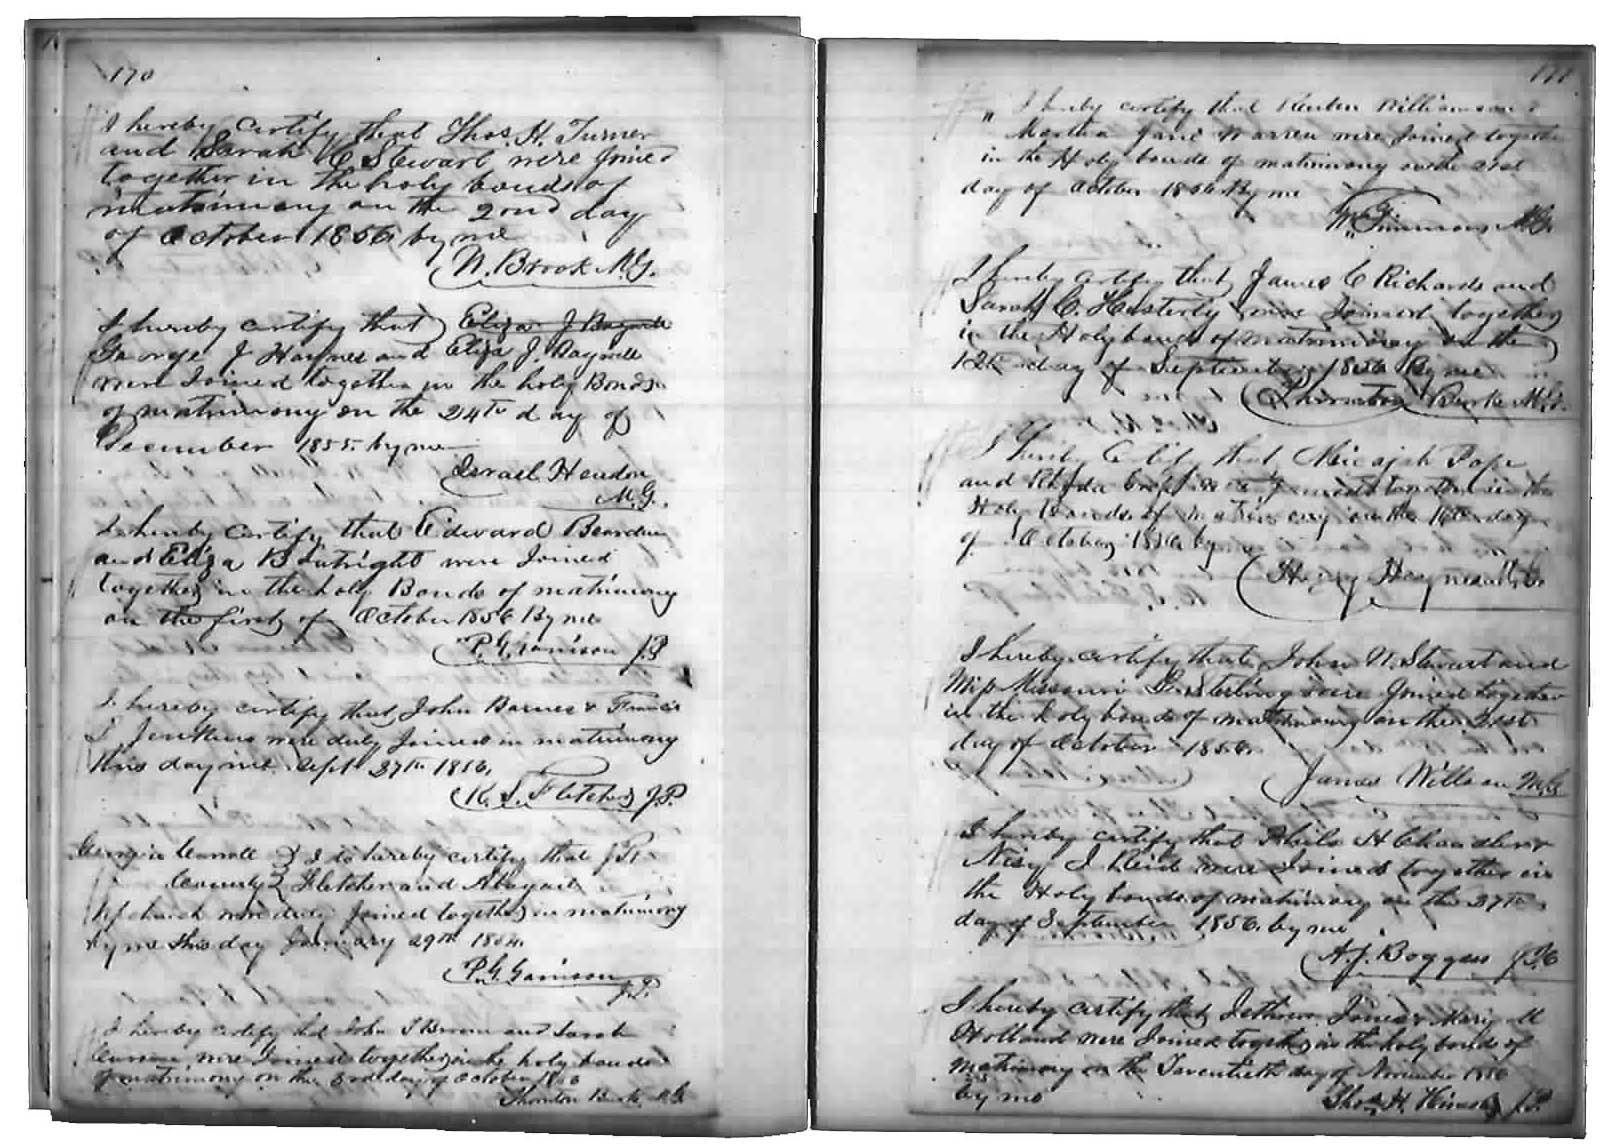 170
I hereby certify that Thos. H. Turner
and Sarah C Stewart were joined
together in the holy bonds of
matrimony on the 22nd day
of October 1856 by me
W. Brook M.G.
I hereby certify that Eliza J Bagwell
George J Haynes and Eliza J. Bagwell
were Joined together in the holy Bonds
of matrimony on the 24th day of
December 1855. by me
Israel Hendon
M.G.
I hereby certify that Edward Bearden
and Eliza B were Joined
together in the holy Bonds of matrimony
on the first of October 1856 By me
P. G. Garrison J.P
I hereby certify that John Barnes & Francis
S Jenkins were duly Joined in matrimony
this day Sept 27th 1856.
R. S. Fletcher J.P.
Georgia Carroll } I do hereby certify that
County } Fletcher and Abagail
Upchurch were duly Joined together in matrimony
by me this day January 29th
P. G. Garrison
J.P.
I hereby certify that John and Sarah
were Joined together in the holy bonds
of matrimony on the day of October 1856
Thornton Burk M.G
171
I hereby certify that Reuben Williamson &
Martha Jane Warren were Joined together
in the Holy bonds of matrimony on the 21st
day of October 1856 By me
M.G.
I hereby certify that James C Richards and
Sarah C. Hesterly were Joined together
in the Holy bonds of matrimony on the
12th day of September 1856 By me
Thornton Burke M.G.
I Hereby Certify that Micajah Pope
and Rhoda were Joined together in the
Holy Bonds of Matrimony on the 16th day
of October 1856 by me
Haynes
I hereby certify that John N. Stewart and
Miss Missouri were Joined together
in the holy bonds of matrimony on the 21st
day of October 1856.
James Willson M.G
I hereby certify that Philo H Chandler &
J Reid were Joined together in
the Holy bonds of matrimony on the 27th
day of September 1856. by me
A. J. Boggess
I hereby certify that Jethrow Jones & Mary M
Holland were Joined together in the holy bonds of
matrimony on the Twentieth day of November 1856
by me
Thos. H. J.P.